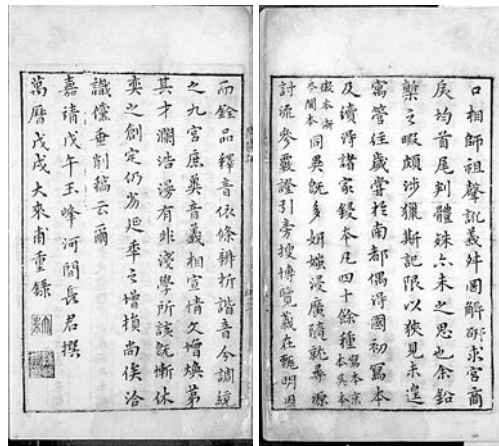 口相師祖聲訛義舛圖解研求宮商
戾均首尾判體殊六未之思也余鉛
槧之暇頗涉獵斯記限以狹見未遑
寓管往歲嘗於南都偶得國初寫本
及續得諸家鋟本凡四十餘種
同異旣多媸妍浸廣隨就尋源
討流參覈證引旁搜博覽義在甄明因
而銓品釋音依條辨析諧音今調統
之九宮庶異音義相宣情文增煥第
其才瀾浩漫有非淺學所該旣慚休
奕之創定仍劣延年之增損尚俟洽
識儻垂削稿云爾
嘉靖戊午玉峰河間長君撰
萬曆戊戌大來甫重錄